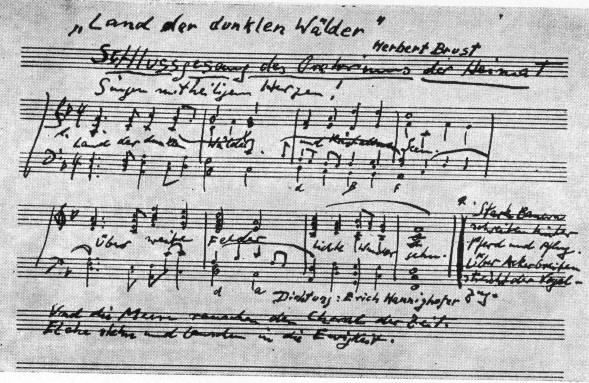 „Land der dunklen Wälder"
Herbert Brust
Schlussgesang des Oratoriums der Heimat
Singen mit heiligem Herzen!
1. Land der dunklen Wälder und Kristallnen Seen.
Über weite Felder lichte Wunder gehn.
2. Starke Bauern
schreiten hinter
Pferd und Pflug.
Über Ackerbreiten
streicht der Vogel-
Dichtung: Erich Hannighofer
Und die Meere rauschen den Choral der Zeit.
Elche stehn und lauschen in die Ewigkeit.